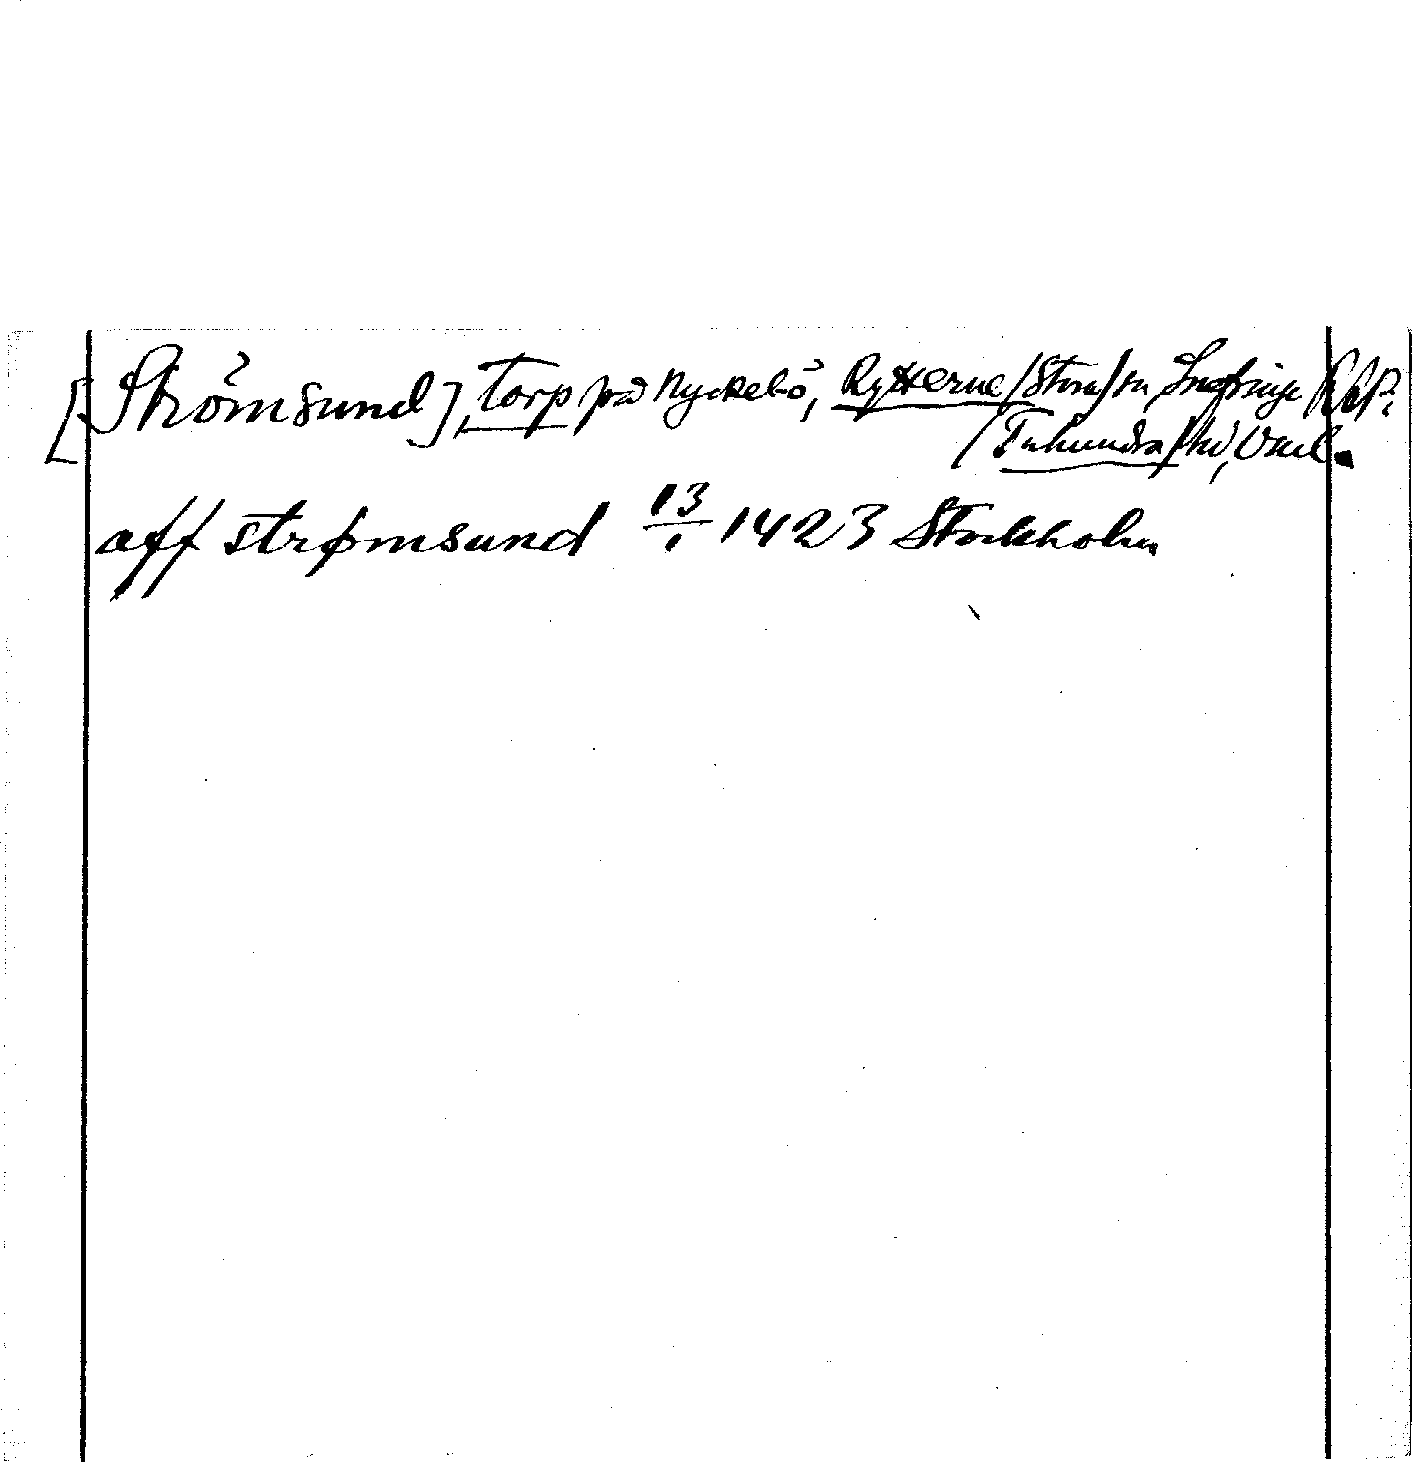 [Strömsund], torp på Nyckelö, Rytterne (Stora) sn Snefringe
(Tuhundra) hd, Vml.
aff strømsund 13/1 1423 Stockholm